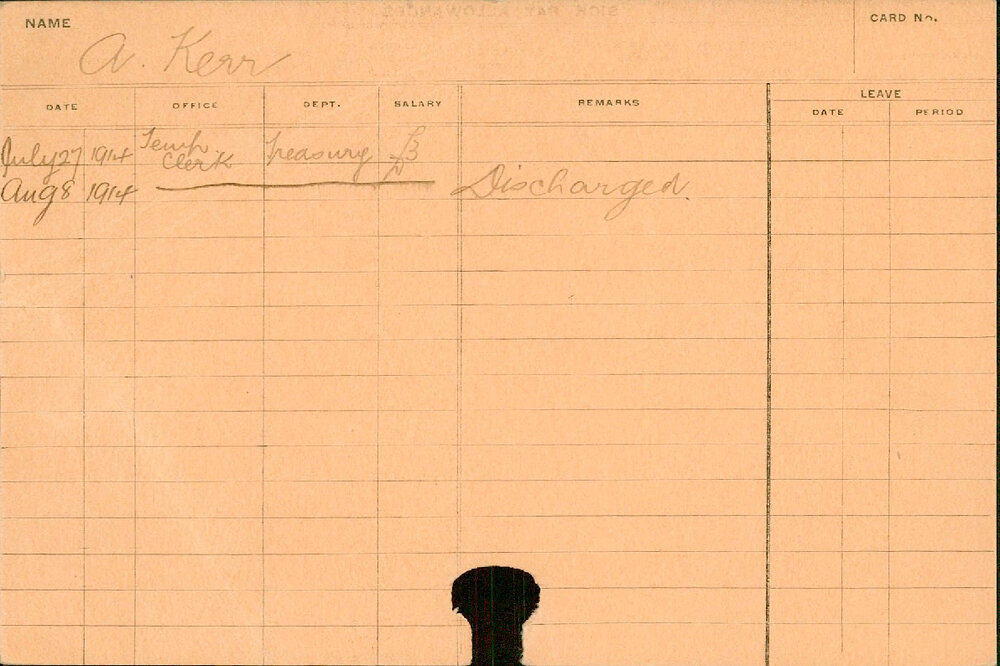 NAME
CARD No.
A. Kerr
DATE OFFICE DEPT. SALARY REMARKS LEAVE
DATE PERIOD
July 27 1914 Temp Clerk Treasury
Aug 8 1914 Discharged.